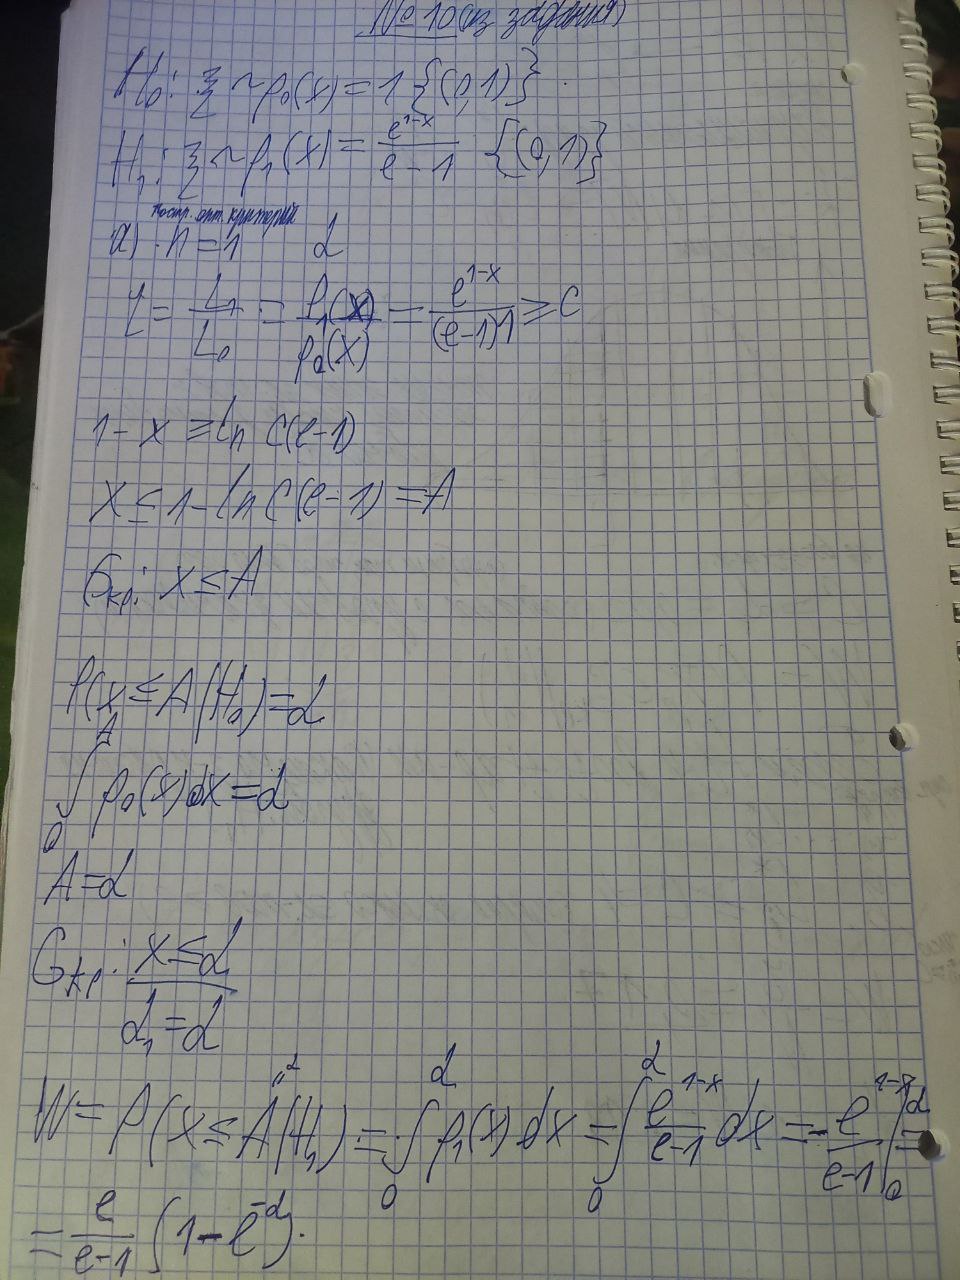 № 10 (из задания)
H₀: ξ ~ p₀(x) = 1 {(0,1)}
H₁: ξ ~ p₁(x) = e^(1-x)/(e-1) {(0,1)}
постр. опт. критерий
а) n = 1 α
l = L₁/L₀ = p₁(x)/p₀(x) = e^(1-x)/((e-1)1) ≥ C
1 - x ≥ ln C(e-1)
x ≤ 1 - ln C(e-1) = A
Gкр: x ≤ A
P(x ≤ A | H₀) = α
∫₀^A p₀(x)dx = α
A = α
Gкр: x ≤ α
α₁ = α
W = P(x ≤ A | H₁) = ∫₀^α p₁(x)dx = ∫₀^α e^(1-x)/(e-1) dx = - e^(1-x)/(e-1) |₀^α =
= e/(e-1) (1 - e^(-α)).